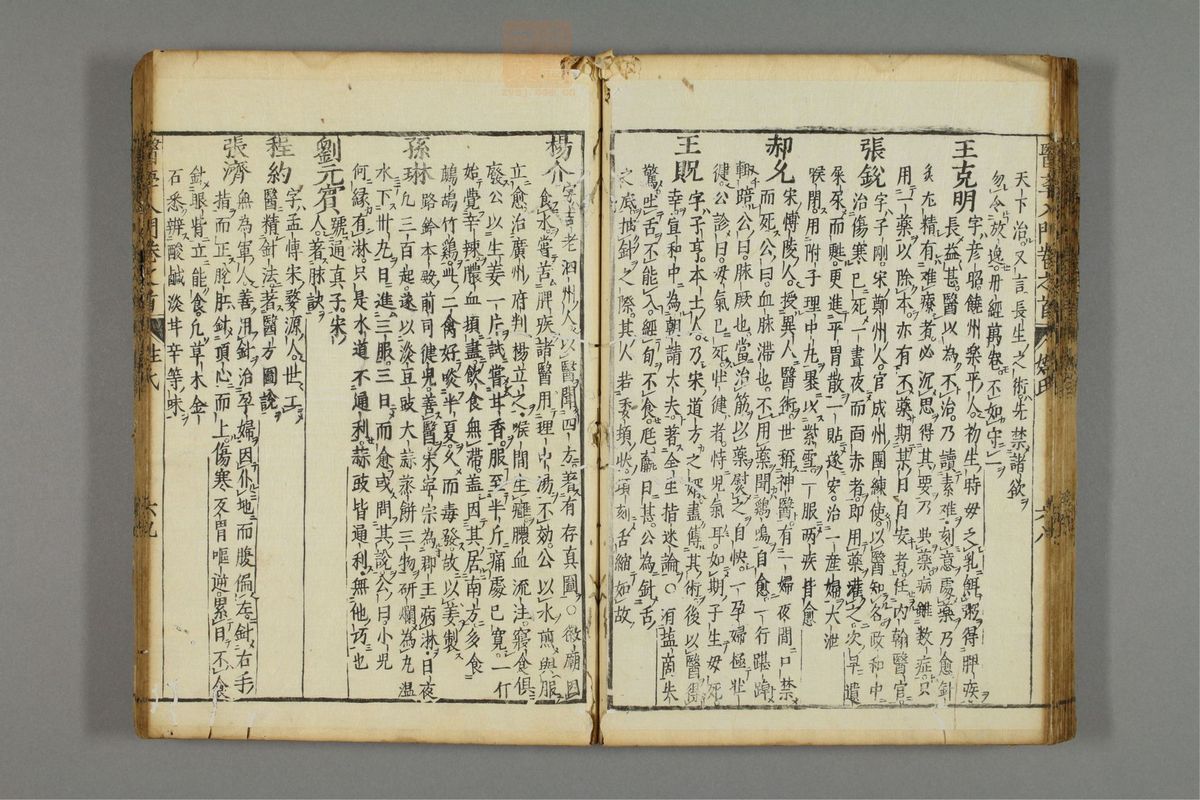 天下治又言長生之術先禁諸欲
勿令放逸丹經萬卷不如守一
王克明
字彦昭饒州樂平人初生時母乏乳餌粥得脾疾
長益甚醫以為不治乃讀素難刻意處藥乃愈針
灸尤精有難療者必沉思得其要乃與藥病雖数症只
用一藥以除本亦有不藥期某日自安者任内翰醫官
張銳
字子剛宋鄭州人官成州團練使以醫知名政和中
治傷寒已死一晝夜而面赤者即用藥灌之次早遺
屎尿而甦更進平胃散一貼遂安治一産婦大泄
喉閉用附子理中丸裹以紫雪一服兩疾甘愈
郝允
宋博陵人授異人醫術世稱神醫有一婦夜間口禁
而死公曰血脉滯也不用藥聞鷄鳴自愈一行踸踔
輙踣公曰脉厥也當治筋以藥熨之自快一孕婦極壮
健公診曰母氣已死壮健者恃兒氣耳如期子生母死
王貺
字子亨本士人乃宋道方之婿盡傳其術後以醫
幸宣和中為朝請大夫著全生指迷論○有盐商失
驚吐舌不能入經旬不食尫羸日甚公為針舌
之底抽針之際其人若委頓状頃刻舌縮如故
醫學入門卷之首
姓氏
楊介
字吉老泗州人以醫聞四方著有存真圖○徽廟因
食氷嘗苦脾疾諸醫用理中湯不効公以氷煎與服
立愈治廣州府判楊立之喉間生癰膿血流注寢食俱
廢公以生姜一片試嘗甘香服至半斤痛處已寛一斤
始覺辛辣膿血頓盡飲食無滯盖因其居南方多食
鷓鴣竹鷄此二禽好啖半夏久而毒發故以姜製
孫琳
路鈐本殿前司健兒善醫宋寧宗為郡王病淋日夜
凡三百起遂以淡豆豉大蒜蒸餅三物研爛為丸温
水下卅丸日進三服三日而愈或問其說公曰小兒
何縁有淋只是水道不通利蒜豉皆通利無他巧也
劉元賓
號通真子宋
人著脉訣
程約
字孟博宋婺源人世工
醫精針法著醫方圖說
張濟
無為軍人善用針治孕婦因仆地而腹偏左針右手
指而正脫肛針頂心而上傷寒反胃嘔逆累日不食
針眼眥立能食凡草木金
石悉辨酸鹹淡甘辛等味
醫學入門卷之首
姓氏
六九